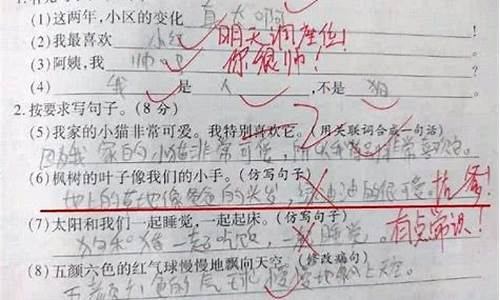 (1)这两年,小区的变化真大啊
(2)我最喜欢小红 明天调座位!
(3)阿姨,我帅吧 你很帅!
(4)我是人,不是狗
2.按要求写句子。(8 分)
(5)我家的小猫非常可爱。我特别喜欢它。(用关联词合成一句话)
因为我家的小猫非常可爱,所以我特别非常喜欢它。
(6)枫树的叶子像我们的小手。(仿写句子)
地上的草地像爸爸的头发,绿油油的很可爱。找爹!
(7)太阳和我们一起睡觉,一起起床。(仿写句子)
狗和猪一起吃饭,一起睡觉。有点常识!
(8)五颜六色的红气球慢慢地飘向天空。(修改病句)
五颜六色的气球慢慢地飘上天空。